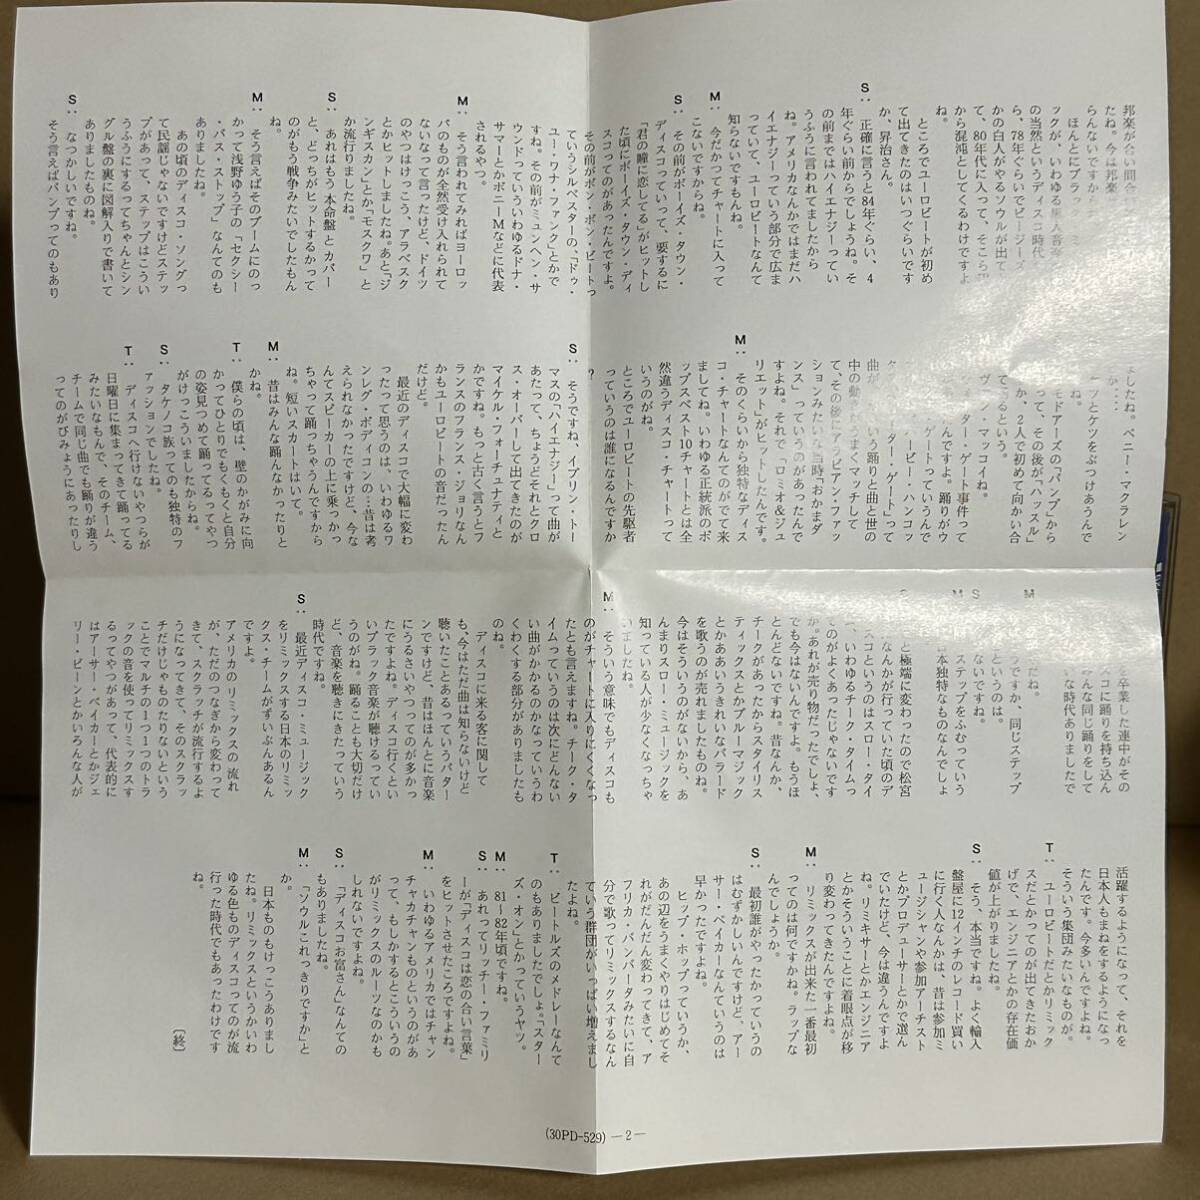 邦楽が合い間合
たね。今は邦楽
らんないですか
ほんとにブラッ
ックが、いわゆる黒人音楽
の当然というディスコ時代
ら、78年ぐらいでビージー
かの白人がやるソウルが出て
て、80年代に入って、そこら
から混沌としてくるわけですよ
ね。
ところでユーロビートが初め
て出てきたのはいつぐらいです
か、昇治さん。
S:正確に言うと84年ぐらい、4
年ぐらい前からでしょうね。そ
の前まではハイエナジーってい
うふうに言われてましたから
ね。アメリカなんかではまだハ
イエナジーっていう部分で広ま
っていて、ユーロビートなんて
知らないですもんね。
M:今だかつてチャートに入って
こないですからね。
S:その前がボーイズ・タウン・
ディスコっていって、要するに
「君の瞳に恋してる」がヒットし
た頃にボーイズ・タウン・ディ
スコってのがあったんですよ。
その前がボン・ボン・ビートっ
ていうシルベスターの、「ドゥ・
ユー・ワナ・ファンク」とかで
すね。その前がミュンヘン・サ
ウンドっていういわゆるドナ・
サマーとかボニーMなどに代表
されるやつ。
M:そう言われてみればヨーロッ
パのものが全然受け入れられて
ないなって言ったけど、ドイツ
のやつはけっこう、アラベスク
とかヒットしましたね。あと「ジ
ンギスカン」とか「モスクワ」と
か流行りましたね。
S:あれはもう本命盤とカバー
と、どっちがヒットするかって
のがもう戦争みたいでしたもん
ね。
M:そう言えばそのブームにのっ
かって浅野ゆう子の「セクシー
・バス・ストップ」なんてのも
ありましたね。
あの頃のディスコ・ソングっ
て民謡じゃないですけどステッ
プがあって、ステップはこうい
うふうにするってちゃんとシン
グル盤の裏に図解入りで書いて
ありましたものね。
S:なつかしいですね。
そう言えばバンプってのもあり
ましたね。ペニー・マクラレン
か‥‥
ッとケツをぶつけあうんで
モドアーズの「バンプ」から
って、その後が「ハッスル」
か、2人で初めて向かい合
M
ヴァン・マッコイね。
ーター・ゲート事件って
ービー・ハンコッ
ーター・ゲート」って
ゲートっていうんで
んですよね。踊りがウ
曲が いう踊りと曲と世の
中の動 うまくマッチして
て、その後にアラビアン・ファッ
ションみたいな当時「おかまダ
ンス」っていうのがあったんで
すよね。それで「ロミオ&ジュ
リエット」がヒットしたんです。
M:そのくらいから独特なディス
コ・チャートなんてのがでて来
ましてね。いわゆる正統派のポ
ップスベスト10チャートとは全
然違うディスコ・チャートって
いうのがね。
ところでユーロビートの先駆者
っていうのは誰になるんですか
?
S:そうですね、イブリン・トー
マスの「ハイエナジー」って曲が
あたって、ちょうどそれとクロ
ス・オーバーして出てきたのが
マイケル・フォーチュナティと
かですね。もっと古く言うとフ
ランスのフランス・ジョリなん
かもユーロビートの音だったん
だけど。
最近のディスコで大幅に変わ
ったって思うのは、いわゆるワ
ンレグ・ボディコンの…昔は考
えられなかったですけど、今な
んてスピーカーの上に乗っかっ
ちゃって踊っちゃうんですから
ね。短いスカートはいて。
M:昔はみんな踊んなかったりと
かね。
T:僕らの頃は、壁のかがみに向
かってひとりでもくもくと自分
の姿見つめて踊ってるってやつ
がけっこういましたからね。
S:タケノコ族ってのも独特のフ
ァッションでしたね。
T:ディスコへ行けないやつらが
日曜日に集まってきて踊ってる
みたいなもんで、そのチーム、
チームで同じ曲でも踊りが違う
ってのがびみょうにあったりし
M
だね。
を卒業した連中がその
スコに踊りを持ち込ん
みんな同じ踊りをして
いな時代ありましたで
うですか、同じステップ
というのは。
S
M
ステップをふむっていう
日本独特なものなんでしょ
S
と極端に変わったので松宮
なんかが行っていた頃のデ
スコというのはスロー・タイ
、いわゆるチーク・タイムっ
てのがよくあったじゃないです
か。あれが売り物だったでしょ、
でも今はないんですよ。もうほ
とんどないですね。昔なんか、
チークがあったからスタイリス
ティックスとかブルーマジック
とかああいうきれいなバラード
を歌うのが売れましたものね。
今はそういうのがないから、あ
んまりスロー・ミュージックを
知っている人が少なくなっちゃ
いましたね。
M:そういう意味でもディスコも
のがチャートに入りにくくなっ
たとも言えますね。チーク・タ
イムっていうのは次にどんない
い曲がかかるのかなっていうわ
くわくする部分がありましたも
のね。
ディスコに来る客に関して
も、今はただ曲は知らないけど
聴いたことあるっていうパター
ンですけど、昔はほんとに音楽
にうるさいやつってのが多かっ
たですよね。ディスコ行くとい
いブラック音楽が聴けるってい
うね。踊ることも大切だけ
ど、音楽を聴きにきたっていう
時代ですね。
S:最近ディスコ・ミュージック
をリミックスする日本のリミッ
クス・チームがずいぶんあるん
ですよ。
アメリカのリミックスの流れ
が、ただのつなぎから変わって
きて、スクラッチが流行するよ
うになってきて、そのスクラッ
チだけじゃものたりないという
ことでマルチの1つ1つのトラ
ックの音を使ってリミックスす
るってやつがあって、代表的に
はアーサー・ベイカーとかジェ
リー・ビーンとかいろんな人が
活躍するようになって、それを
日本人もまねをするようになっ
たんです。今多いんですよね、
そういう集団みたいなものが。
T:ユーロビートだとかリミック
スだとかってのが出てきたおか
げで、エンジニアとかの存在価
値が上がりましたね。
S:そう、本当ですね。よく輸入
盤屋に12インチのレコード買い
に行く人なんかは、昔は参加ミ
ュージシャンや参加アーチスト
とかプロデューサーとかで選ん
でいたけど、今は違うんですよ
ね。リミキサーとかエンジニア
とかそういうことに着眼点が移
り変わってきたんですよね。
M:リミックスが出来た一番最初
ってのは何ですかね。ラップな
んでしょうか。
S:最初誰がやったかっていうの
はむずかしいんですけど、アー
サー・ベイカーなんていうのは
早かったですよね。
ヒップ・ホップっていうか、
あの辺をうまくやりはじめてそ
れがだんだん変わってきて、ア
フリカ・バンバータみたいに自
分で歌ってリミックスするなん
ていう群団がいっぱい増えまし
たよね。
T:ビートルズのメドレーなんて
のもありましたでしょ。「スター
ズ・オン」とかっていうヤツ。
M:81〜82年頃ですね。
S:あれってリッチー・ファミリ
ーが「ディスコは恋の合い言葉」
をヒットさせたころですよね。
M:いわゆるアメリカではチャン
チャカチャンものというのがあ
って、もしかするとこういうの
がリミックスのルーツなのかも
しれないですよね。
S:「ディスコお富さん」なんての
もありましたね。
M:「ソウルこれっきりですか」と
か。
日本ものもけっこうありまし
たね。リミックスというかいわ
ゆる色ものディスコってのが流
行った時代でもあったわけです
ね。
〔終〕
(30PD-529) —2—